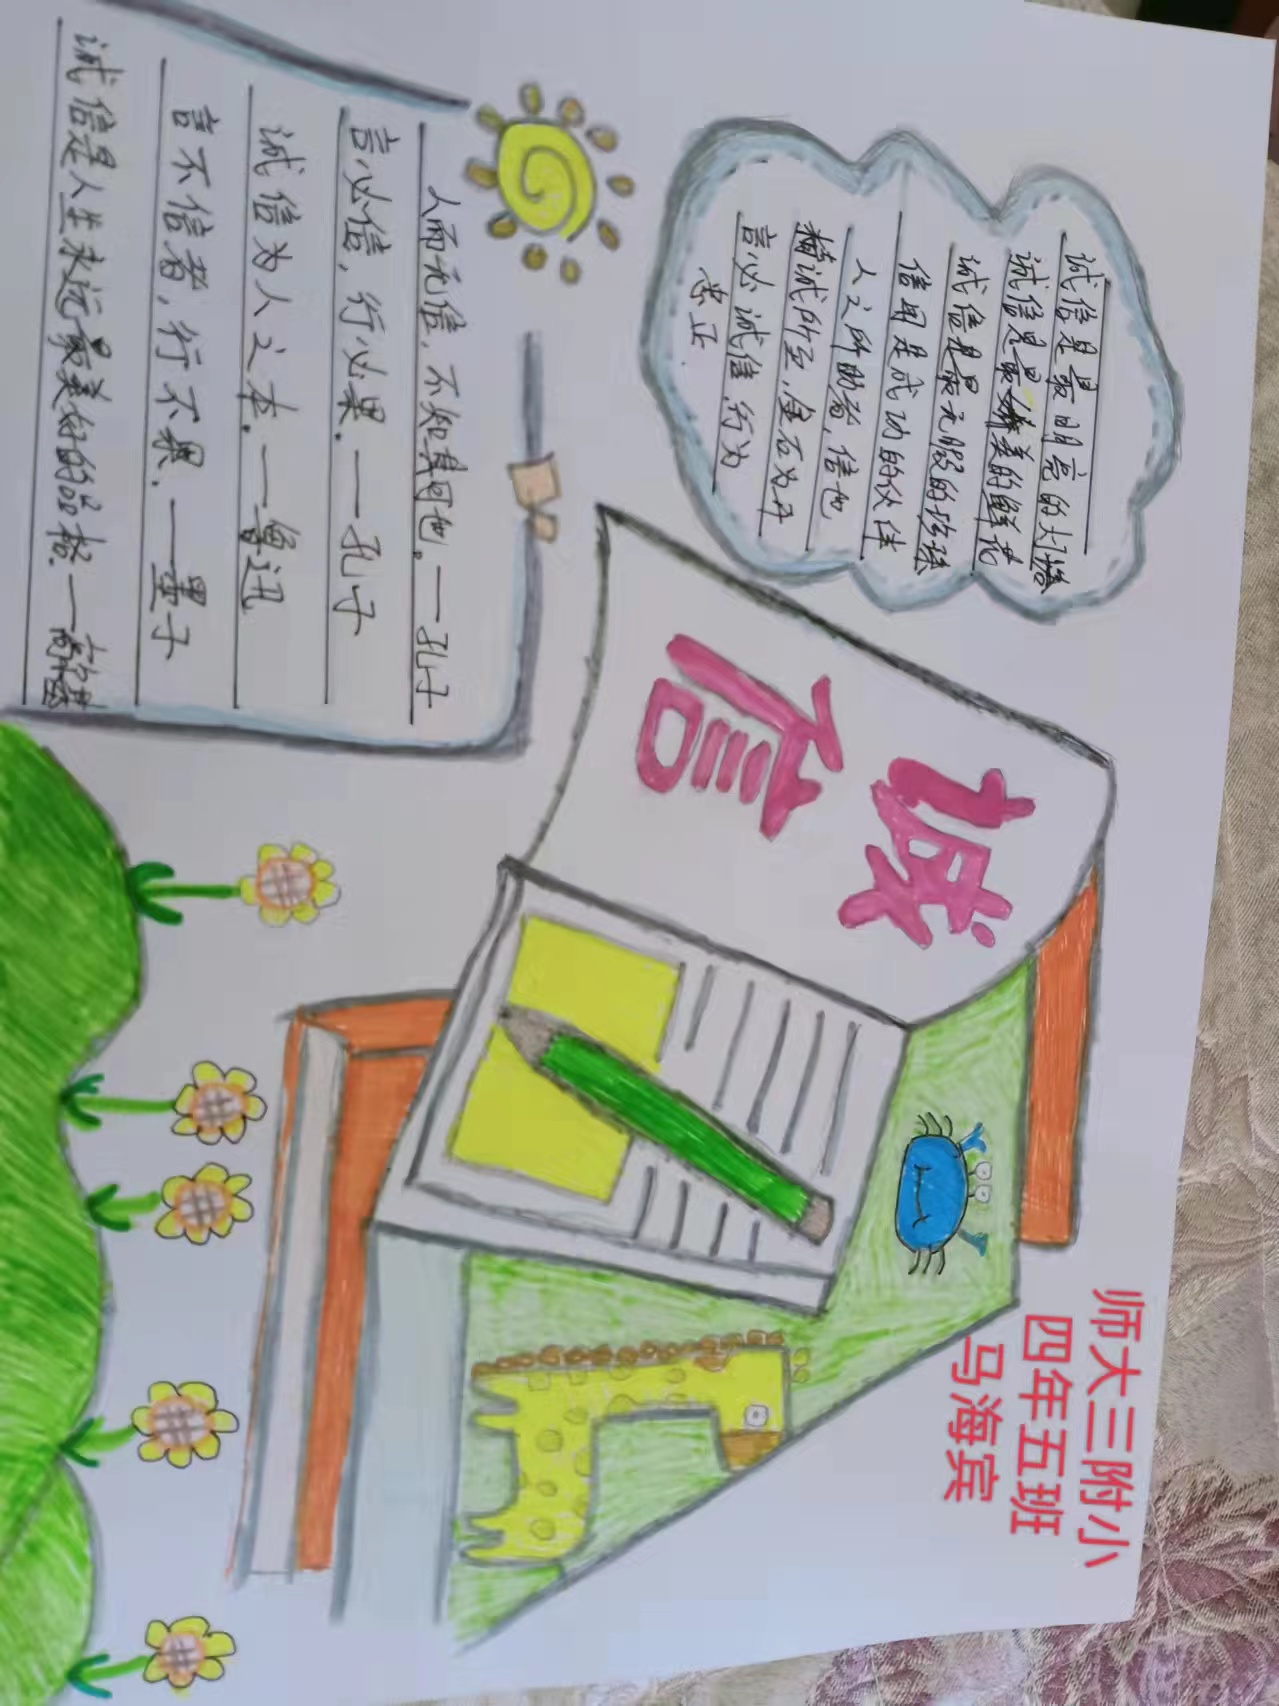 诚信是最明亮的灯塔
诚信是最美的鲜花
诚信是最无瑕的珍珠
信用是成功的伙伴
人之所助者,信也
精诚所至,金石为开
言必诚信,行为
忠正
诚信
师大三附小
四年五班
马海宾
人而无信,不知其可也。一孔子
言必信,行必果.一孔子
诚信为人之本.一鲁迅
言不信者,行不果.一墨子
诚信是人生永远最美好的品格.一高尔基